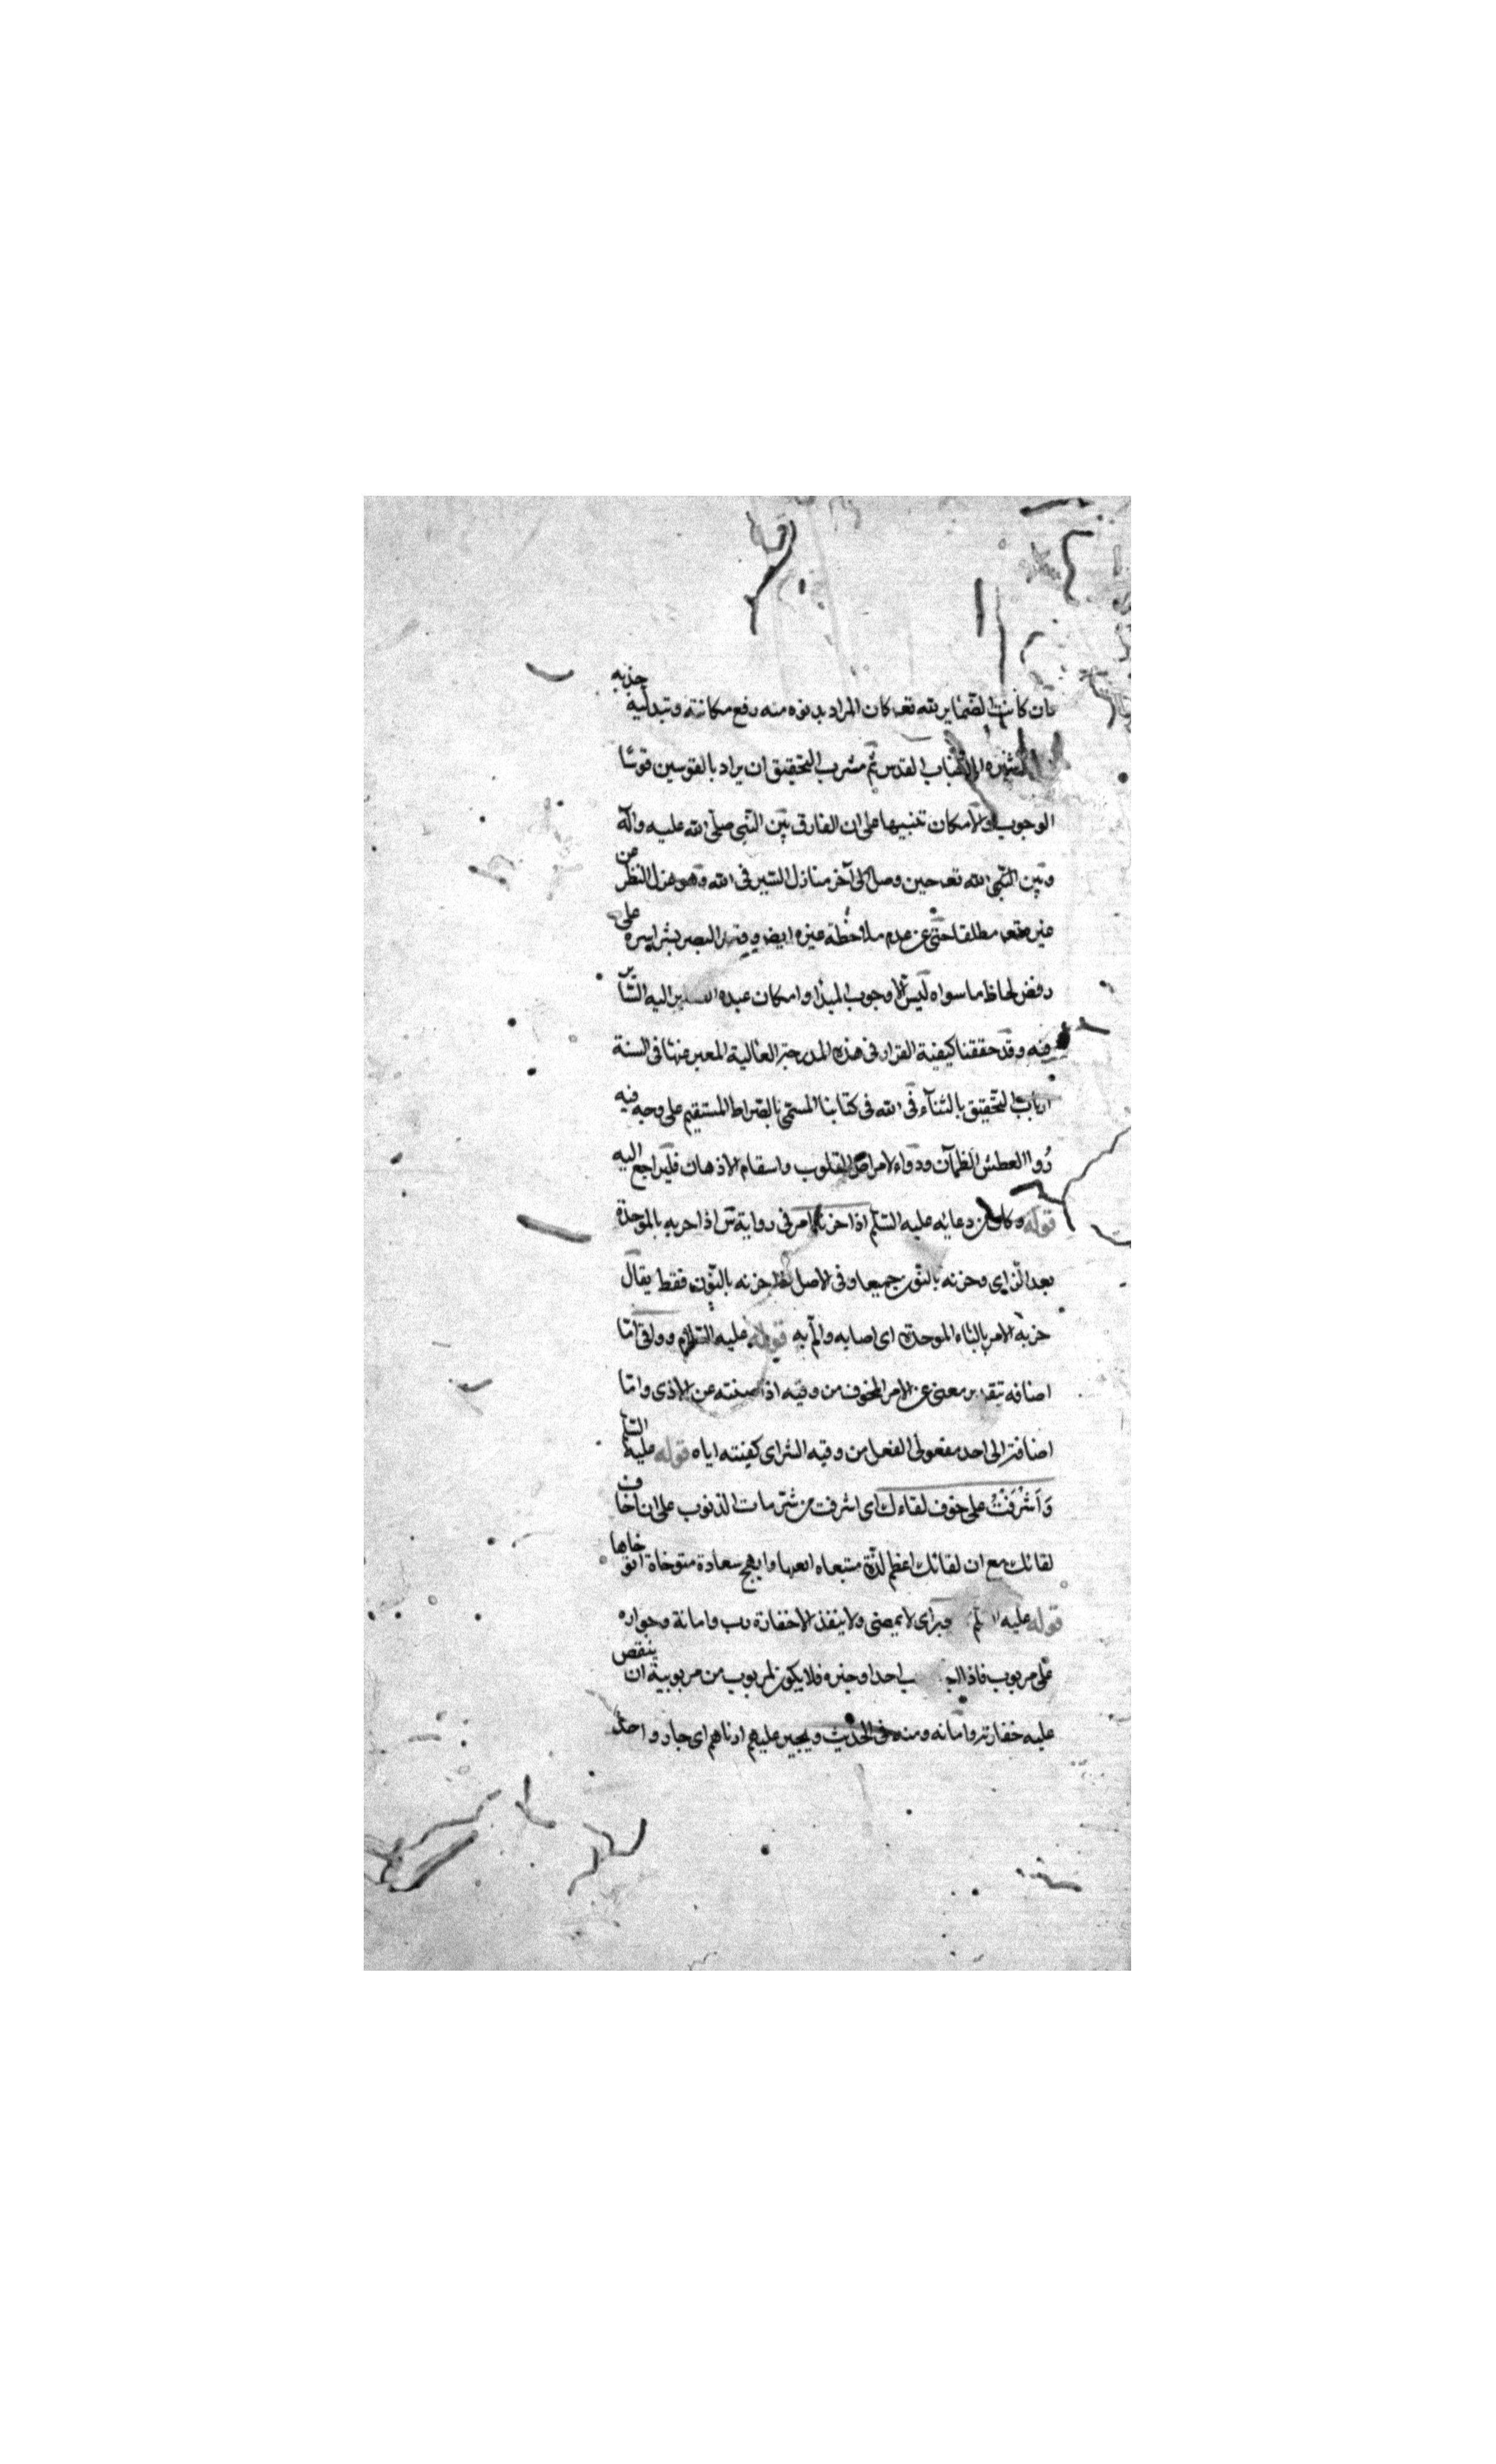 فان كانت الضماير لله تعـ كان المراد بدنوه منه رفع مكانته وتبدليه جذبه
بشره الى جناب القدس ثم مشرب التحقيق ان يراد بالقوسين قوسا
الوجوب والامكان تنبيها على ان الفارق بين النبي صلى الله عليه وآله
وبين الله تعـ حين وصل الى آخر منازل السير في الله وهو عزل النظر عن
غيره تعـ مطلقا حتى عن عدم ملاحظة غيره ايضا وقصر البصر بشراسره على
رفض لحاظ ما سواه ليس الا وجوب المبدا وامكان عبده اليه الساير
فيه وقد حققنا كيفية القرار في هذه الدرجة العالية المعبر عنها في السنة
ارباب التحقيق بالفنآء في الله في كتابنا المسمى بالصراط المستقيم على وجه فيه
رُوا العطش الظمآن ودواء لامراض القلوب واسقام الاذهان فليراجع اليه
قوله وكان من دعائه عليه السلم اذا حزنه امر في رواية س اذا حزبه بالموحدة
بعد الزاي وحزنه بالنون جميعا وفي الاصل حزنه بالنون فقط يقال
حزبه الامر بالباء الموحدة اي اصابه والم به قوله عليه السلام ووافى اما
اضافه بتقدير معنى عن الامر المخوف من وقيه اذا صنته عن الاذى واما
اضافة الى احد مفعولى الفعل من وقيه الشر اى كفيته اياه قوله عليه السلم
وَاَشْرَفْتُ على خوف لقاءك اى اشرفت من الذنوب على ان اخاف
لقائك مع ان لقائك اعظم لذة وابهج سعادة متوخاة اتوخاها
قوله عليه اى لا يمضى ولا ينفذ الا خفارة رب وامانة وجواره
على مربوب فاذا احدا وخفره فلا يكون لمربوب من مربوبيه ان ينقض
عليه خفارته وامانه ومنه في الحديث ويجير عليهم ادناهم اى اجار واحد